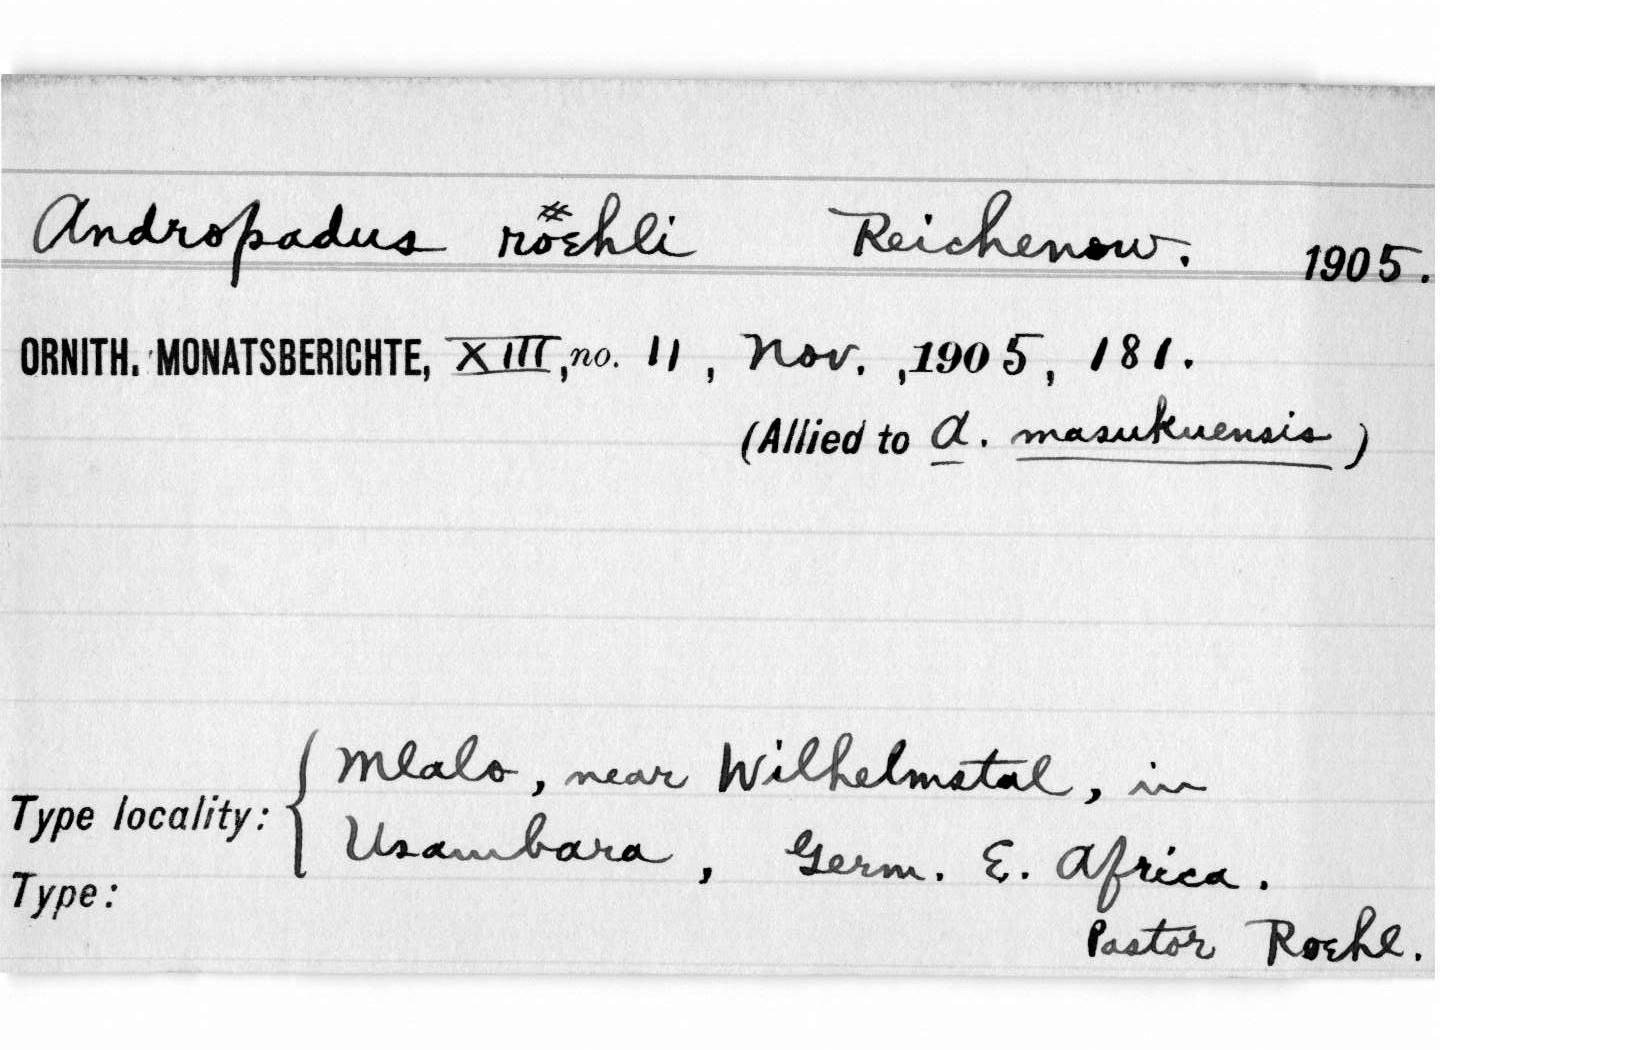 Andropadus roehli Reichenow. 1905.
ORNITH. MONATSBERICHTE, XIII, no. 11, Nov., 1905, 181.
(Allied to A. masukuensis)
Mlalo, near Wilhelmstal, in
Type locality:
Usambara, Germ. E. Africa.
Type:
Pastor Roehl.